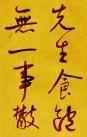 先生食飽
無一事散